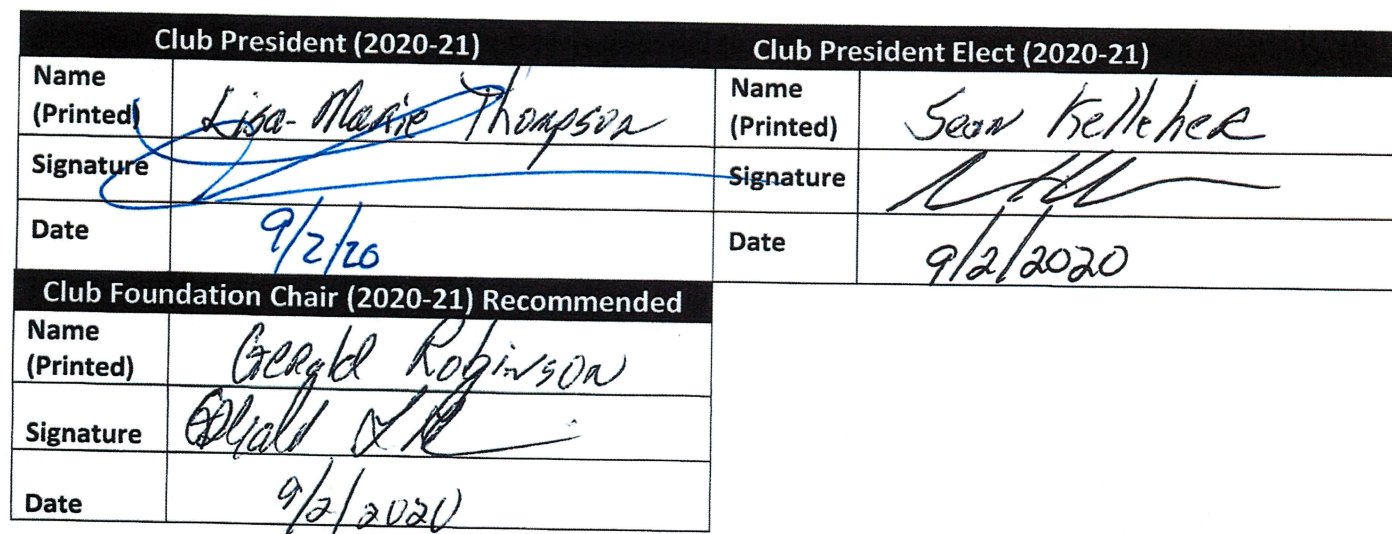 Club President (2020-21)
Name
(Printed)
Lisa-Marie Thompson
Signature
Date
9/2/20
Club President Elect (2020-21)
Name
(Printed)
Sean Kelleher
Signature
Date
9/2/2020
Club Foundation Chair (2020-21) Recommended
Name
(Printed)
Gerald Robinson
Signature
Gerald
Date
9/2/2020